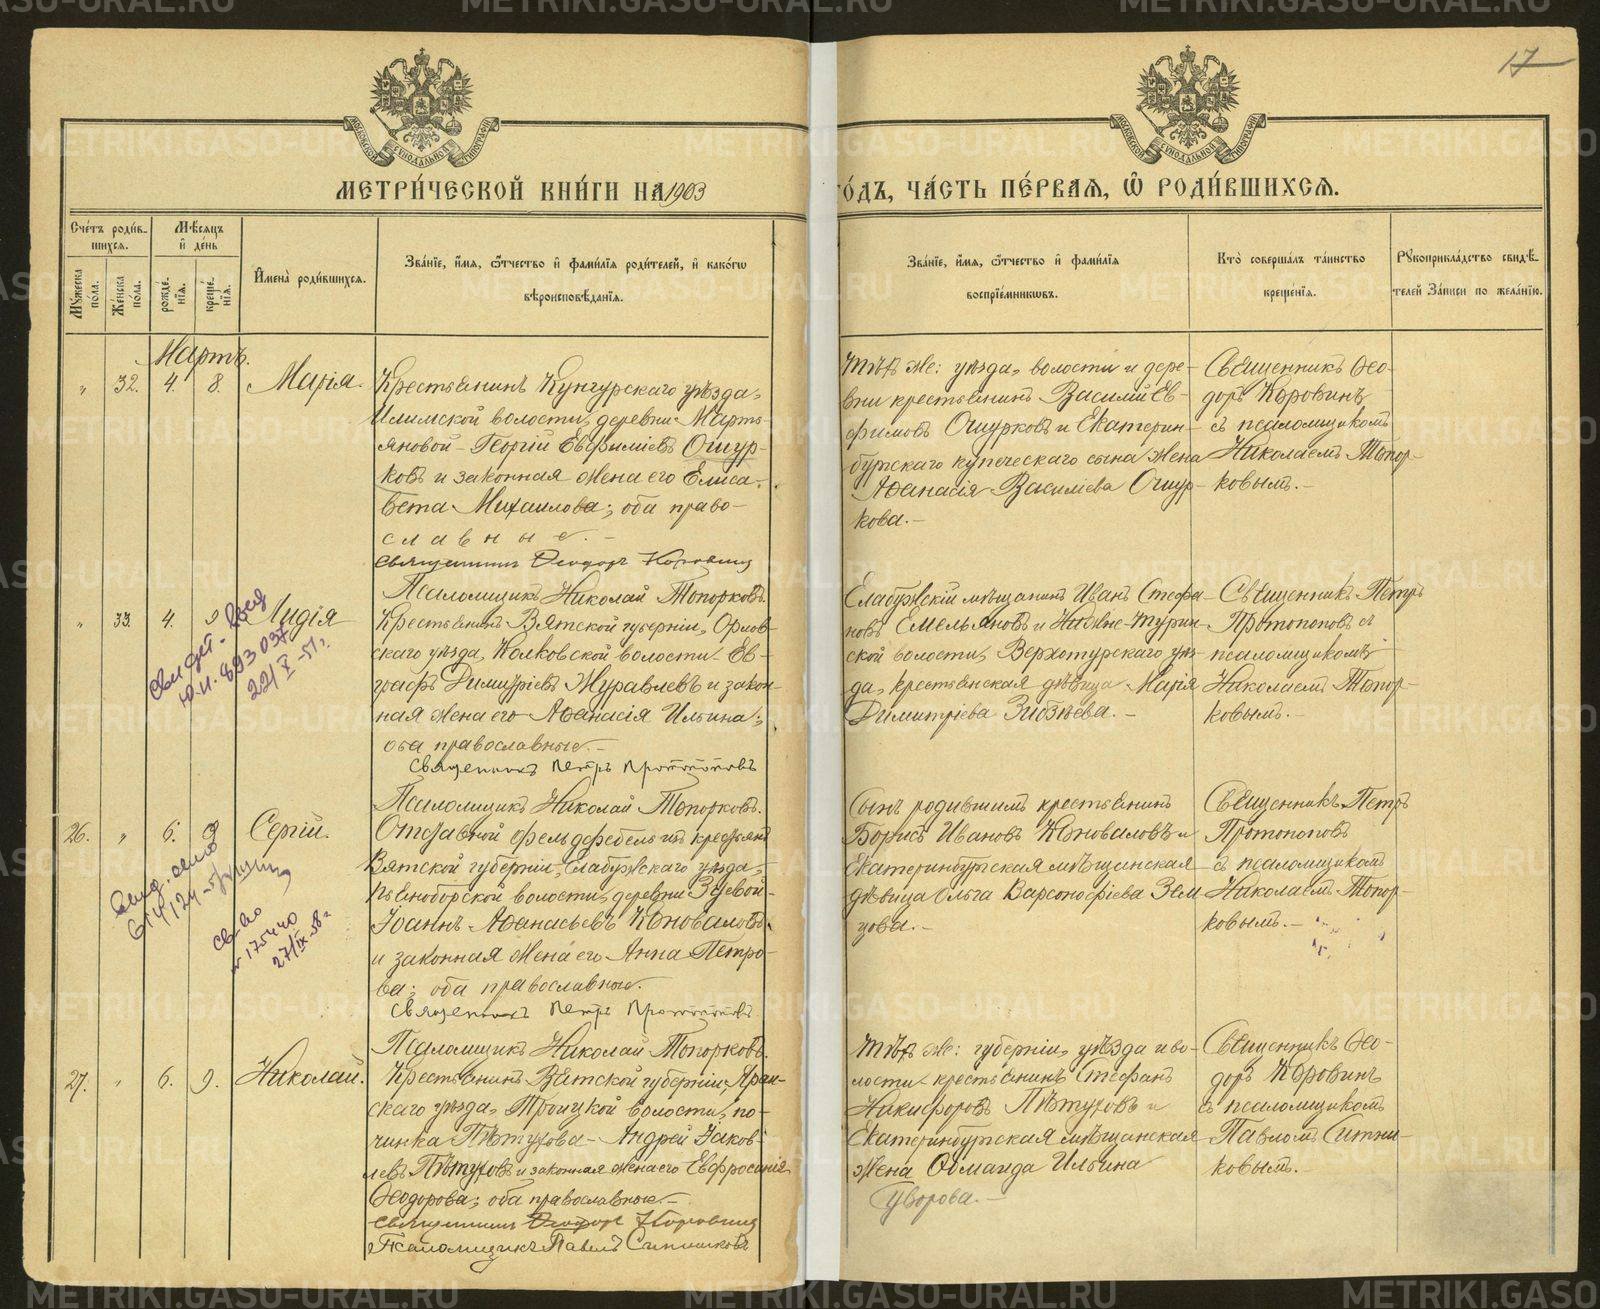 17
МОСКОВСКОЙ СѴНОДАЛЬНОЙ ТИПОГРАФІИ
МОСКОВСКОЙ СѴНОДАЛЬНОЙ ТИПОГРАФІИ
МЕТРИ́ЧЕСКОЙ КНИ́ГИ НА 1903
ГО́ДЪ, ЧА́СТЬ ПЕ́РВАЯ, Ѡ҆ РОДИ́ВШИХСЯ.
Сче́тъ роди́в-
шихся.
Мѣ́сяцъ
и҆ де́нь
Мꙋжеска пола.
Же́нска пола.
рожде́-
нїя.
креще́-
нїя.
И҆мена̀ роди́вшихся.
Зва́нїе, и҆́мя, ѻ҆́тчество и҆ фами́лїя роди́телей, и҆ како́гѡ
вѣроисповѣ́данїя.
Зва́нїе, и҆́мя, ѻ҆́тчество и҆ фами́лїя
воспрїе́мникѡвъ.
Кто̀ соверша́лъ та́инство
креще́нїя.
Рꙋкоприкла́дство свидѣ́-
телей за́писи по жела́нїю.
Мартъ.
" 32. 4. 8. Марія.
Крестьянинъ Кунгурскаго уѣзда,
Илимской волости, деревни Марть-
яновой Георгій Евфиміевъ Ошур-
ковъ и законная жена его Елиса-
вета Михаилова; оба право-
славные.-
Священникъ Феодоръ Коровинъ
Псаломщикъ Николай Топорковъ.
Тѣхъ же: уѣзда, волости и дере-
вни крестьянинъ Василій Ев-
фимовъ Ошурковъ и Екатерин-
бургскаго купеческаго сына жена
Аѳанасія Василіева Ошур-
кова.-
Священникъ Ѳео-
доръ Коровинъ
съ псаломщикомъ
Николаемъ Топор-
ковымъ.-
" 33. 4. 9 Лидія
Крестьянинъ Вятской губерніи, Орлов-
скаго уѣзда, Колковской волости Ев-
графъ Димитріевъ Журавлевъ и закон-
ная жена его Аѳанасія Ильина;
оба православные.-
Священникъ Петръ Протопоповъ
Псаломщикъ Николай Топорковъ.
Елабужскій мѣщанинъ Иванъ Стефа-
новъ Емельяновъ и Нижне-Турин-
ской волости, Верхотурскаго уѣз-
да, крестьянская дѣвица Марія
Димитріева Зибзѣева.-
Священникъ Петръ
Протопоповъ съ
псаломщикомъ
Николаемъ Топор-
ковымъ.-
Ю.И. 893037
22/X-51г.
26. " 6. 9 Сергій.
Отставной фельдфебель изъ крестьянъ
Вятской губерніи, Елабужскаго уѣзда,
Пьяноборской волости, деревни Зуевой
Іоаннъ Аѳанасьевъ Коноваловъ
и законная жена его Анна Петро-
ва; оба православные.
Священникъ Петръ Протопоповъ
Псаломщикъ Николай Топорковъ.
Сынъ родившимъ крестьянинъ
Борисъ Ивановъ Коноваловъ и
Екатеринбургская мѣщанская
дѣвица Ольга Варсонофіева Зем-
цова.-
Священникъ Петръ
Протопоповъ
съ псаломщикомъ
Николаемъ Топор-
ковымъ.-
Св-во
№ 175440
27/IX-58г
27. " 6. 9. Николай.
Крестьянинъ Вятской губерніи, Яран-
скаго уѣзда, Троицкой волости, по-
чинка Пѣтухова Андрей Іаков-
левъ Пѣтуховъ и законная жена его Евфросинія
Ѳеодорова; оба православные.-
Священникъ Феодоръ Коровинъ
Псаломщикъ Павелъ Ситниковъ
Тѣхъ же: губерніи, уѣзда и во-
лости крестьянинъ Стефанъ
Никифоровъ Пѣтуховъ и
Екатеринбургская мѣщанская
жена Ѳомаида Ильина
Уворова.-
Священникъ Ѳео-
доръ Коровинъ
съ псаломщикомъ
Павломъ Ситни-
ковымъ.-
METRIKI.GASO-URAL.RU